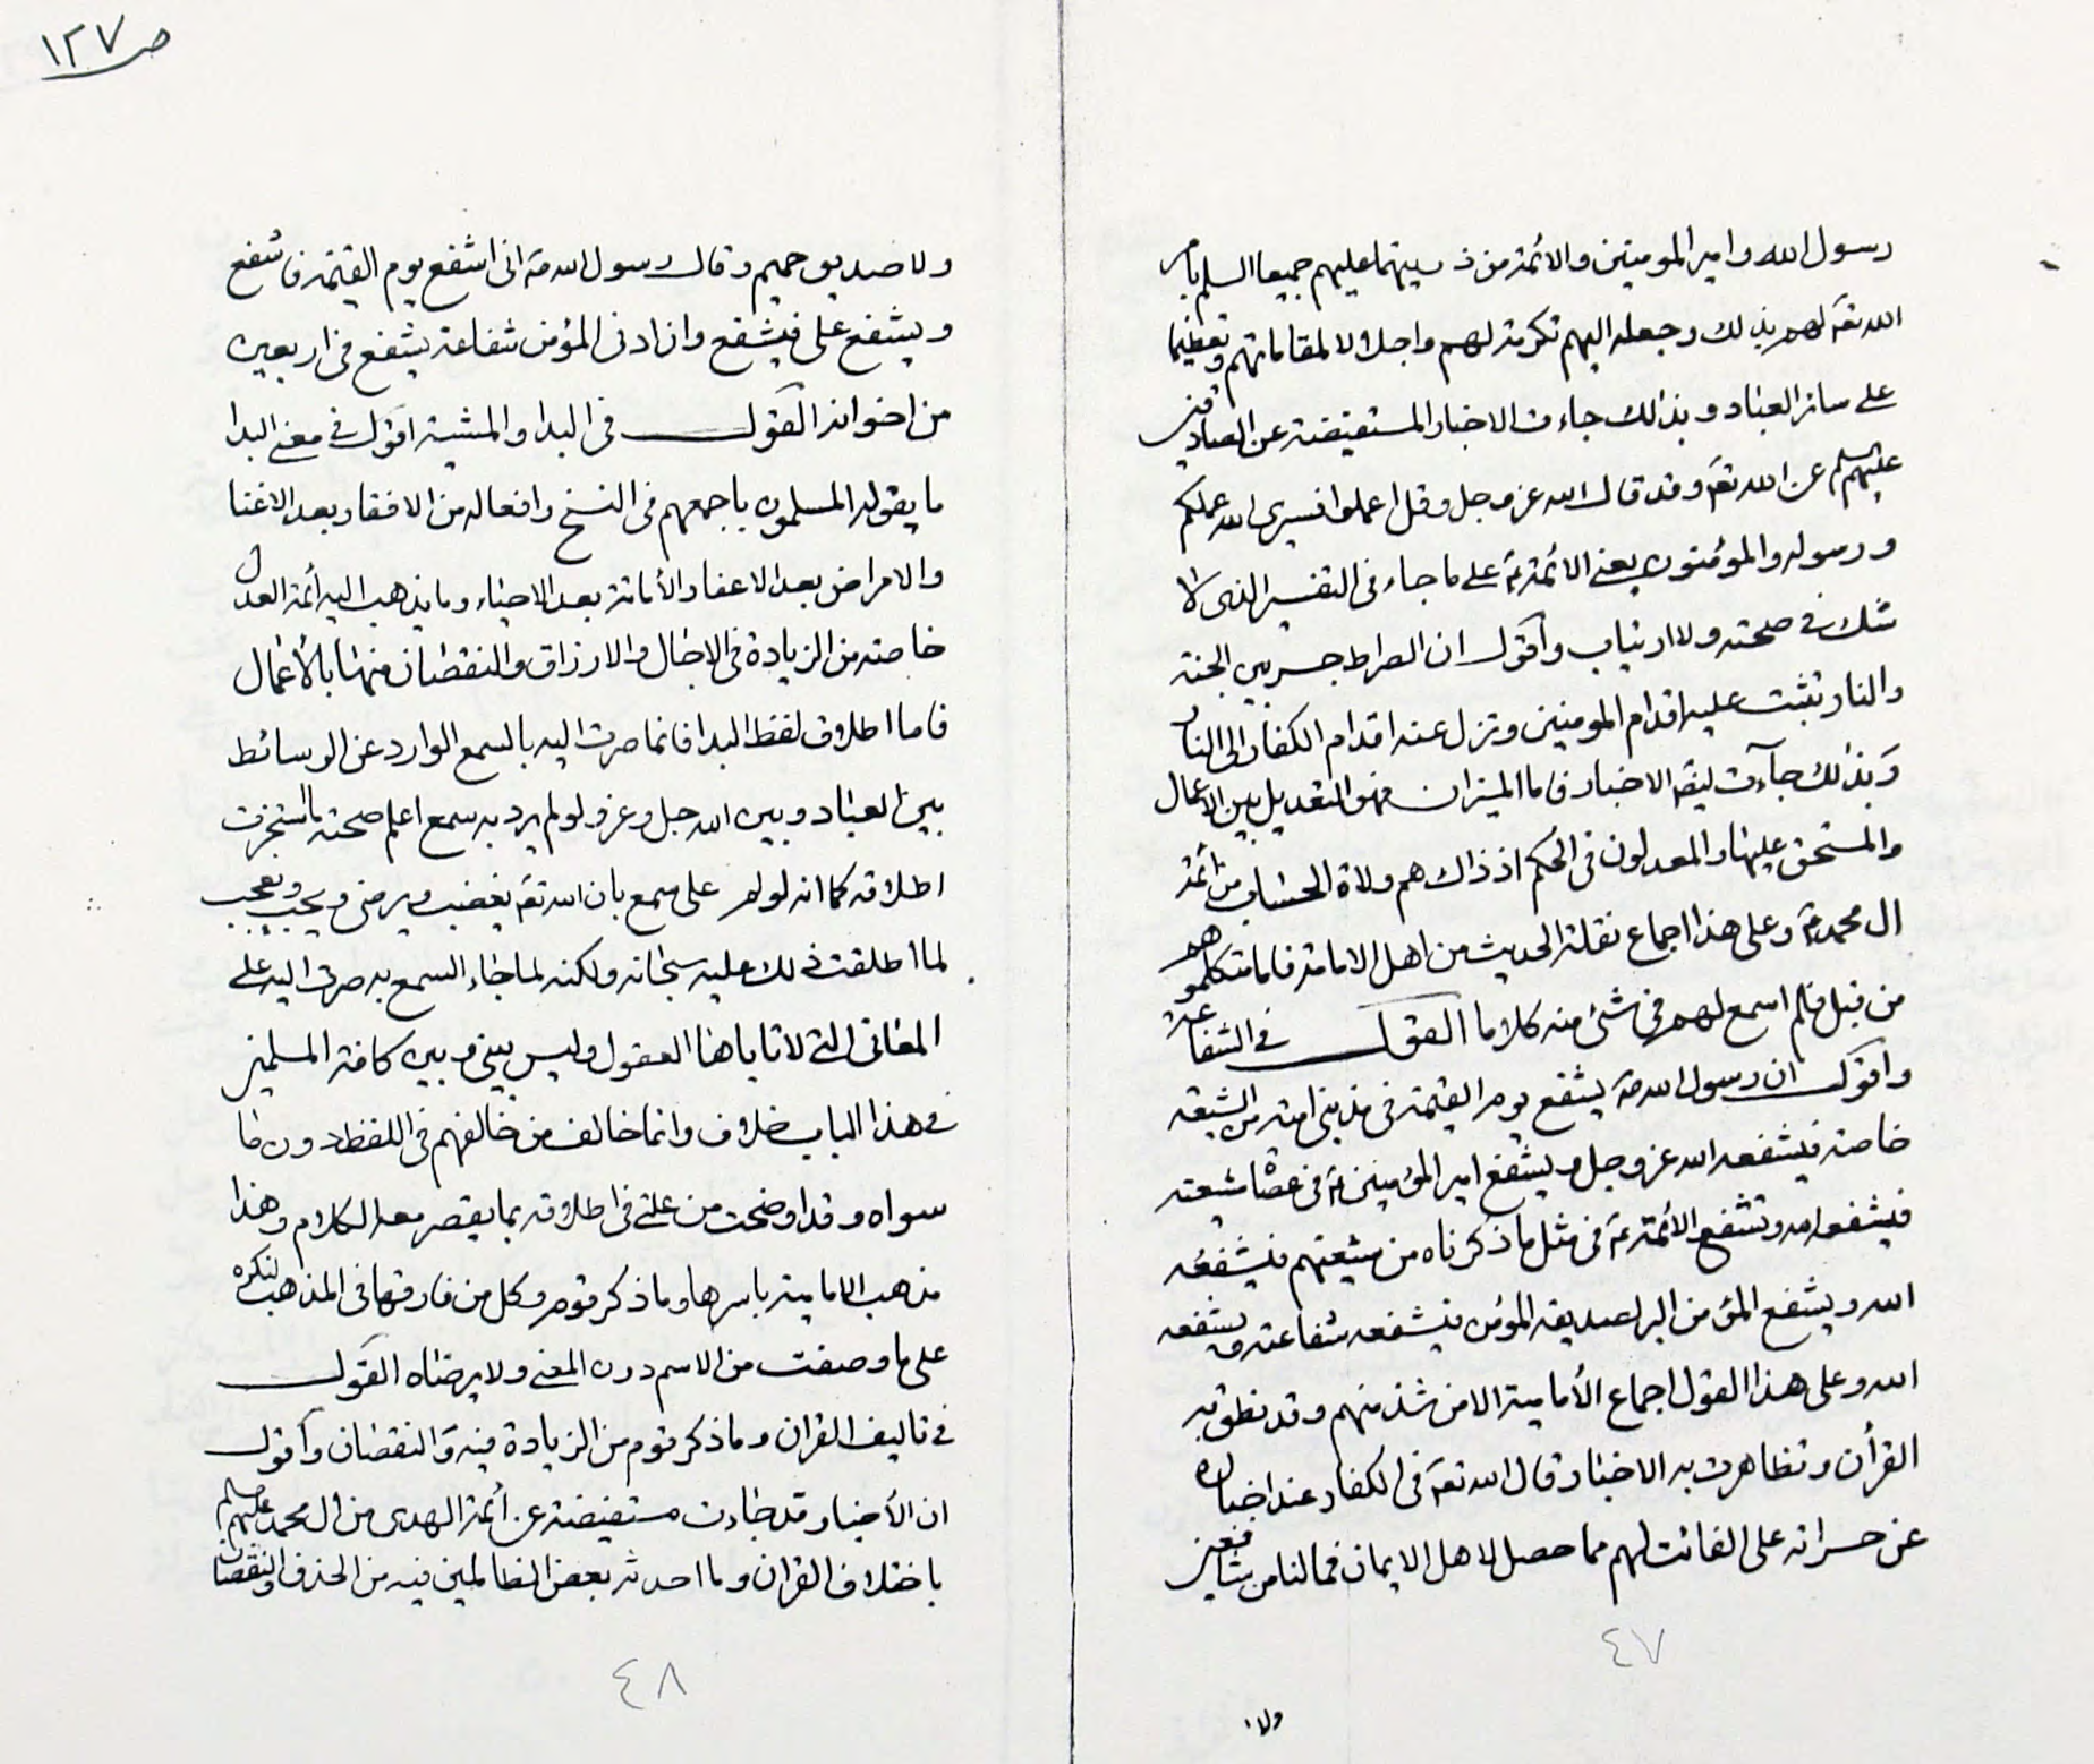 رسول الله وامير المومنين والائمة من ذريتهما عليهم جميعا السلم بامر
الله تعۤ لهم بذلك وجعله اليهم تكرمة لهم واجلالا لمقاماتهم وتعظيما
على سائر العباد وبذالك جاءت الاخبار المستفيضة عن الصادقين
عليهم السلم عن الله تعۤ وقد قال الله عز وجل وقل اعملوا فسيرى الله عملكم
ورسوله والمؤمنون يعنى الائمة عۤ على ما جاء فى التفسير الذى لا
شك فى صحته ولا ارتياب وأقول ان الصراط جسر بين الجنة
والنار تثبت عليه اقدام المومنين وتزل عنه اقدام الكفار الى النار
وبذلك جآءت ايضا الاخبار فاما الميزان فهو التعديل بين الاعمال
والمستحق عليها والمعدلون فى الحكم اذ ذاك هم ولاة الحساب من أئمة
ال محمد عۤ وعلى هذا اجماع نقلة الحديث من اهل الامامة فاما متكلموهم
من قبل فلم اسمع لهم فى شئ منه كلاما القول فى الشفاعة
واقول ان رسول الله صۤ يشفع يوم القيمة فى مذنبى امته من الشيعة
خاصة فيشفعه الله عز وجل ويشفع امير المؤمنين عۤ فى عصاة شيعته
فيشفعه الله وتشفع الائمة عۤ فى مثل ما ذكرناه من شيعتهم فيشفعه
الله ويشفع المؤمن البر لصديقه المؤمن فيشفعه شفاعته ويشفعه
الله وعلى هذا القول اجماع الأمامية الا من شذ منهم وقد نطق به
القرأن وتظاهرت به الاخبار قال الله تعۤ فى الكفار عند اخباره
عن حسراته على الفائت لهم مما حصل لاهل الايمان فمالنا من شافعين
٤٧
ولا
ص ١٢٧
ولا صديق حميم وقال رسول الله صۤ انى اشفع يوم القيمة فاشفع
ويشفع على فيشفع وان ادنى المؤمن شفاعة يشفع فى اربعين
من اخوانه القول فى البدا والمشية اقول فى معنى البدا
ما يقوله المسلمون باجمعهم فى النسخ وافعاله من الافقار بعد الاغنا
والامراض بعد الاعفا والأماتة بعد الاحياء وما يذهب اليه أئمة العدل
خاصة من الزيادة فى الاجال والارزاق والنقصان منها بالأعمال
فاما اطلاق لفظ البدا فانما صرت اليه بالسمع الوارد عن الوسائط
بين العباد وبين الله جل وعز ولو لم يرد به سمع اعلم صحته ما استجزت
اطلاقه كما انه لو لم على سمع بان الله تعۤ يغضب ويرضى ويحب ويعجب
لما اطلقت ذلك عليه سبحانه ولكنه لما جاء السمع به صرت اليه على
المعانى التى لا تاباها العقول وليس بينى وبين كافة المسلمين
فى هذا الباب خلاف وانما خالف من خالفهم فى اللفظ دون ما
سواه وقد اوضحت من علتى فى اطلاقه بما يقصر معه الكلام وهذا
مذهب الامامية باسرها وما ذكر قوم وكل من فارقها فى المذهب لنكره
على ما وصفت من الاسم دون المعنى ولا يرضاه القول
فى تاليف القران وما ذكر قوم من الزيادة فيه والنقصان وأقول
ان الأخبار قد جاءت مستفيضة عن أئمة الهدى من ال محمد عليهم السلم
باختلاف القران وما احدثه بعض الظالمين فيه من الحذف والنقصان
٤٨